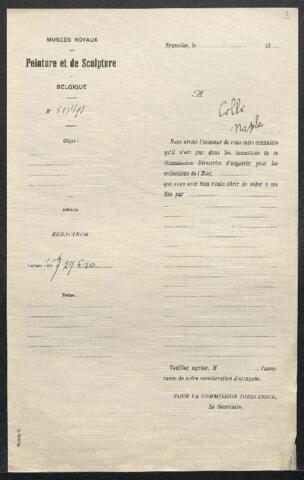 3
MUSÉES ROYAUX
DE
Peinture et de Sculpture
DE
BELGIQUE
N°
Objet :
RÉDACTEUR
27-6-10
Notes :
Bruxelles, le 19
M
Colle
Naples
Nous avons l'honneur de vous faire connaître
qu'il n'est pas dans les intentions de la
Commission Directrice d'acquérir, pour les
collections de l'État,
que vous avez bien voulu offrir de céder à ces
fins par
Veuillez agréer, M , l'assu-
rance de notre considération distinguée.
POUR LA COMMISSION DIRECTRICE,
Le Secrétaire,